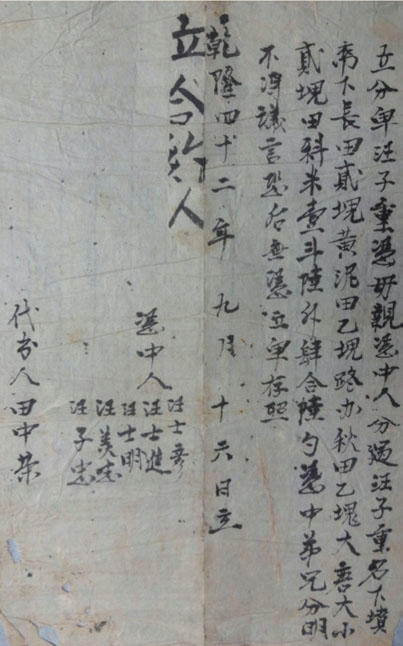 立分单汪子重憑母親憑中人分過汪子重名下墳
下長田貳塊黄泥田乙塊路办秋田乙塊大大小
貳塊田科米壹斗陸升肆合陸勺憑中弟兄分明
不得議言恐后無憑立单存照
乾隆四十二年 九月 十六日立
立合約人
憑中人
汪士
汪士進
汪士明
汪美忠
汪子忠
代書人田中荣